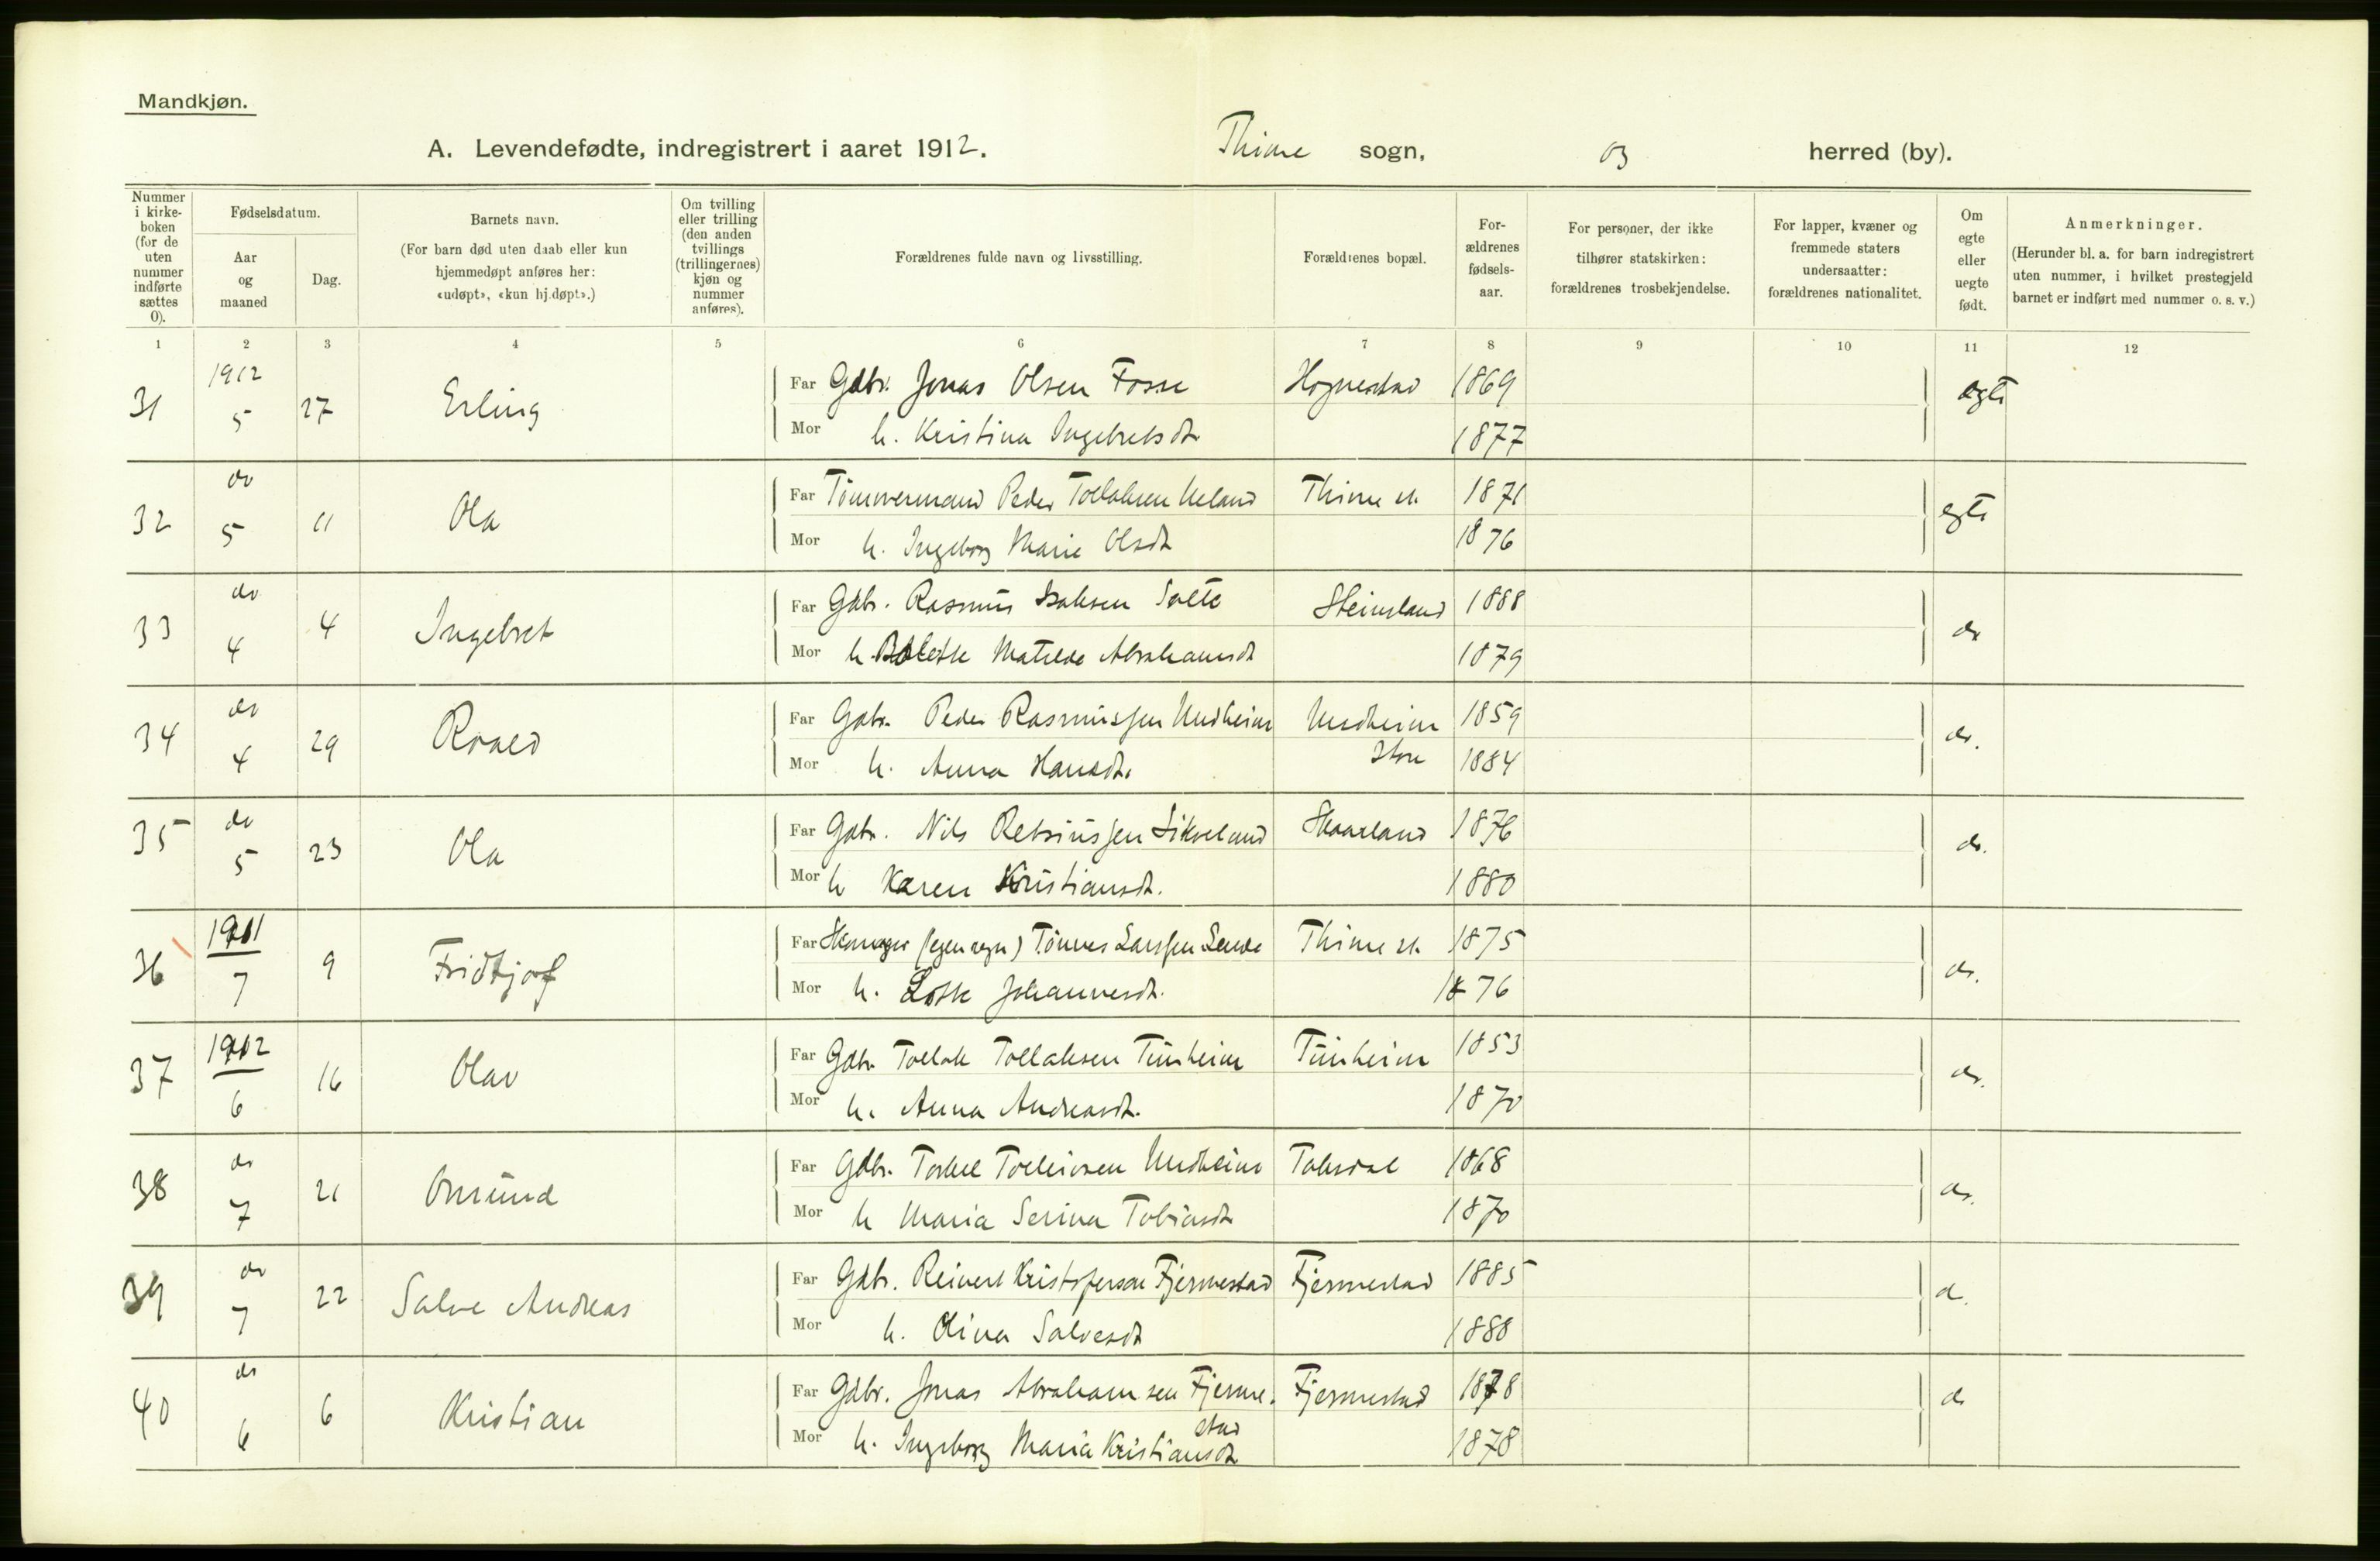 Mandkjøn.
A. Levendefødte, indregistrert i aaret 1912. Thime sogn, og herred (by).
Nummer i kirke-boken (for de uten nummer indførte sættes 0).
Fødselsdatum.
Aar og maaned
Dag.
Barnets navn.
(For barn død uten daab eller kun hjemmedøpt anføres her: «udøpt», «kun hj.døpt».)
Om tvilling eller trilling (den anden tvillings (trillingernes) kjøn og nummer anføres).
Forældrenes fulde navn og livsstilling.
Forældrenes bopæl.
For-ældrenes fødsels-aar.
For personer, der ikke tilhører statskirken: forældrenes trosbekjendelse.
For lapper, kvæner og fremmede staters undersaatter: forældrenes nationalitet.
Om egte eller uegte født.
Anmerkninger.
(Herunder bl. a. for barn indregistrert uten nummer, i hvilket prestegjeld barnet er indført med nummer o. s. v.)
1 2 3 4 5 6 7 8 9 10 11 12
31 1912 5 27 Erling Far Gdbr. Jonas Olsen Fosse Hognestad 1869 egte
Mor h. Kristina Ingebretsdt. 1877
32 do 5 11 Ola Far Tømmermand Peder Tollaksen Ueland Thime st. 1871 egte
Mor h. Ingeborg Marie Olsdt 1876
33 do 4 4 Ingebret Far Gdbr. Rasmus Isaksen Salte Steinsland 1888 do
Mor h. Bolette Matilde Abrahamsdt 1879
34 do 4 29 Roald Far Gdbr. Peder Rasmussen Undheim Undheim store 1859 do.
Mor h. Anna Hansdt. 1884
35 do 5 23 Ola Far Gdbr. Nils Retsiussen Sikveland Skaarland 1876 do.
Mor h Karen Kristiansdt. 1880
36 1911 7 9 Fridtjof Far Skomager (egen regn) Tønnes Larssen Lende Thime st. 1875 do.
Mor h. Lotte Johannesdt. 1876
37 1912 6 16 Olav Far Gdbr. Tollak Tollaksen Tunheim Tunheim 1853 do.
Mor h. Anna Andreasdt. 1870
38 do 7 21 Omund Far Gdbr. Torkel Tolleivsen Undheim Taksdal 1868 do.
Mor h Maria Serina Tobiasdt 1870
39 do 7 22 Salve Andreas Far Gdbr. Reinert Kristofersen Fjermestad Fjermestad 1885 d.
Mor h. Olina Salvesdt 1888
40 do 6 6 Kristian Far Gdbr. Jonas Abrahamsen Fjerme. Fjermestad 1878 do
stad
Mor h. Ingeborg Maria Kristiansdt 1878